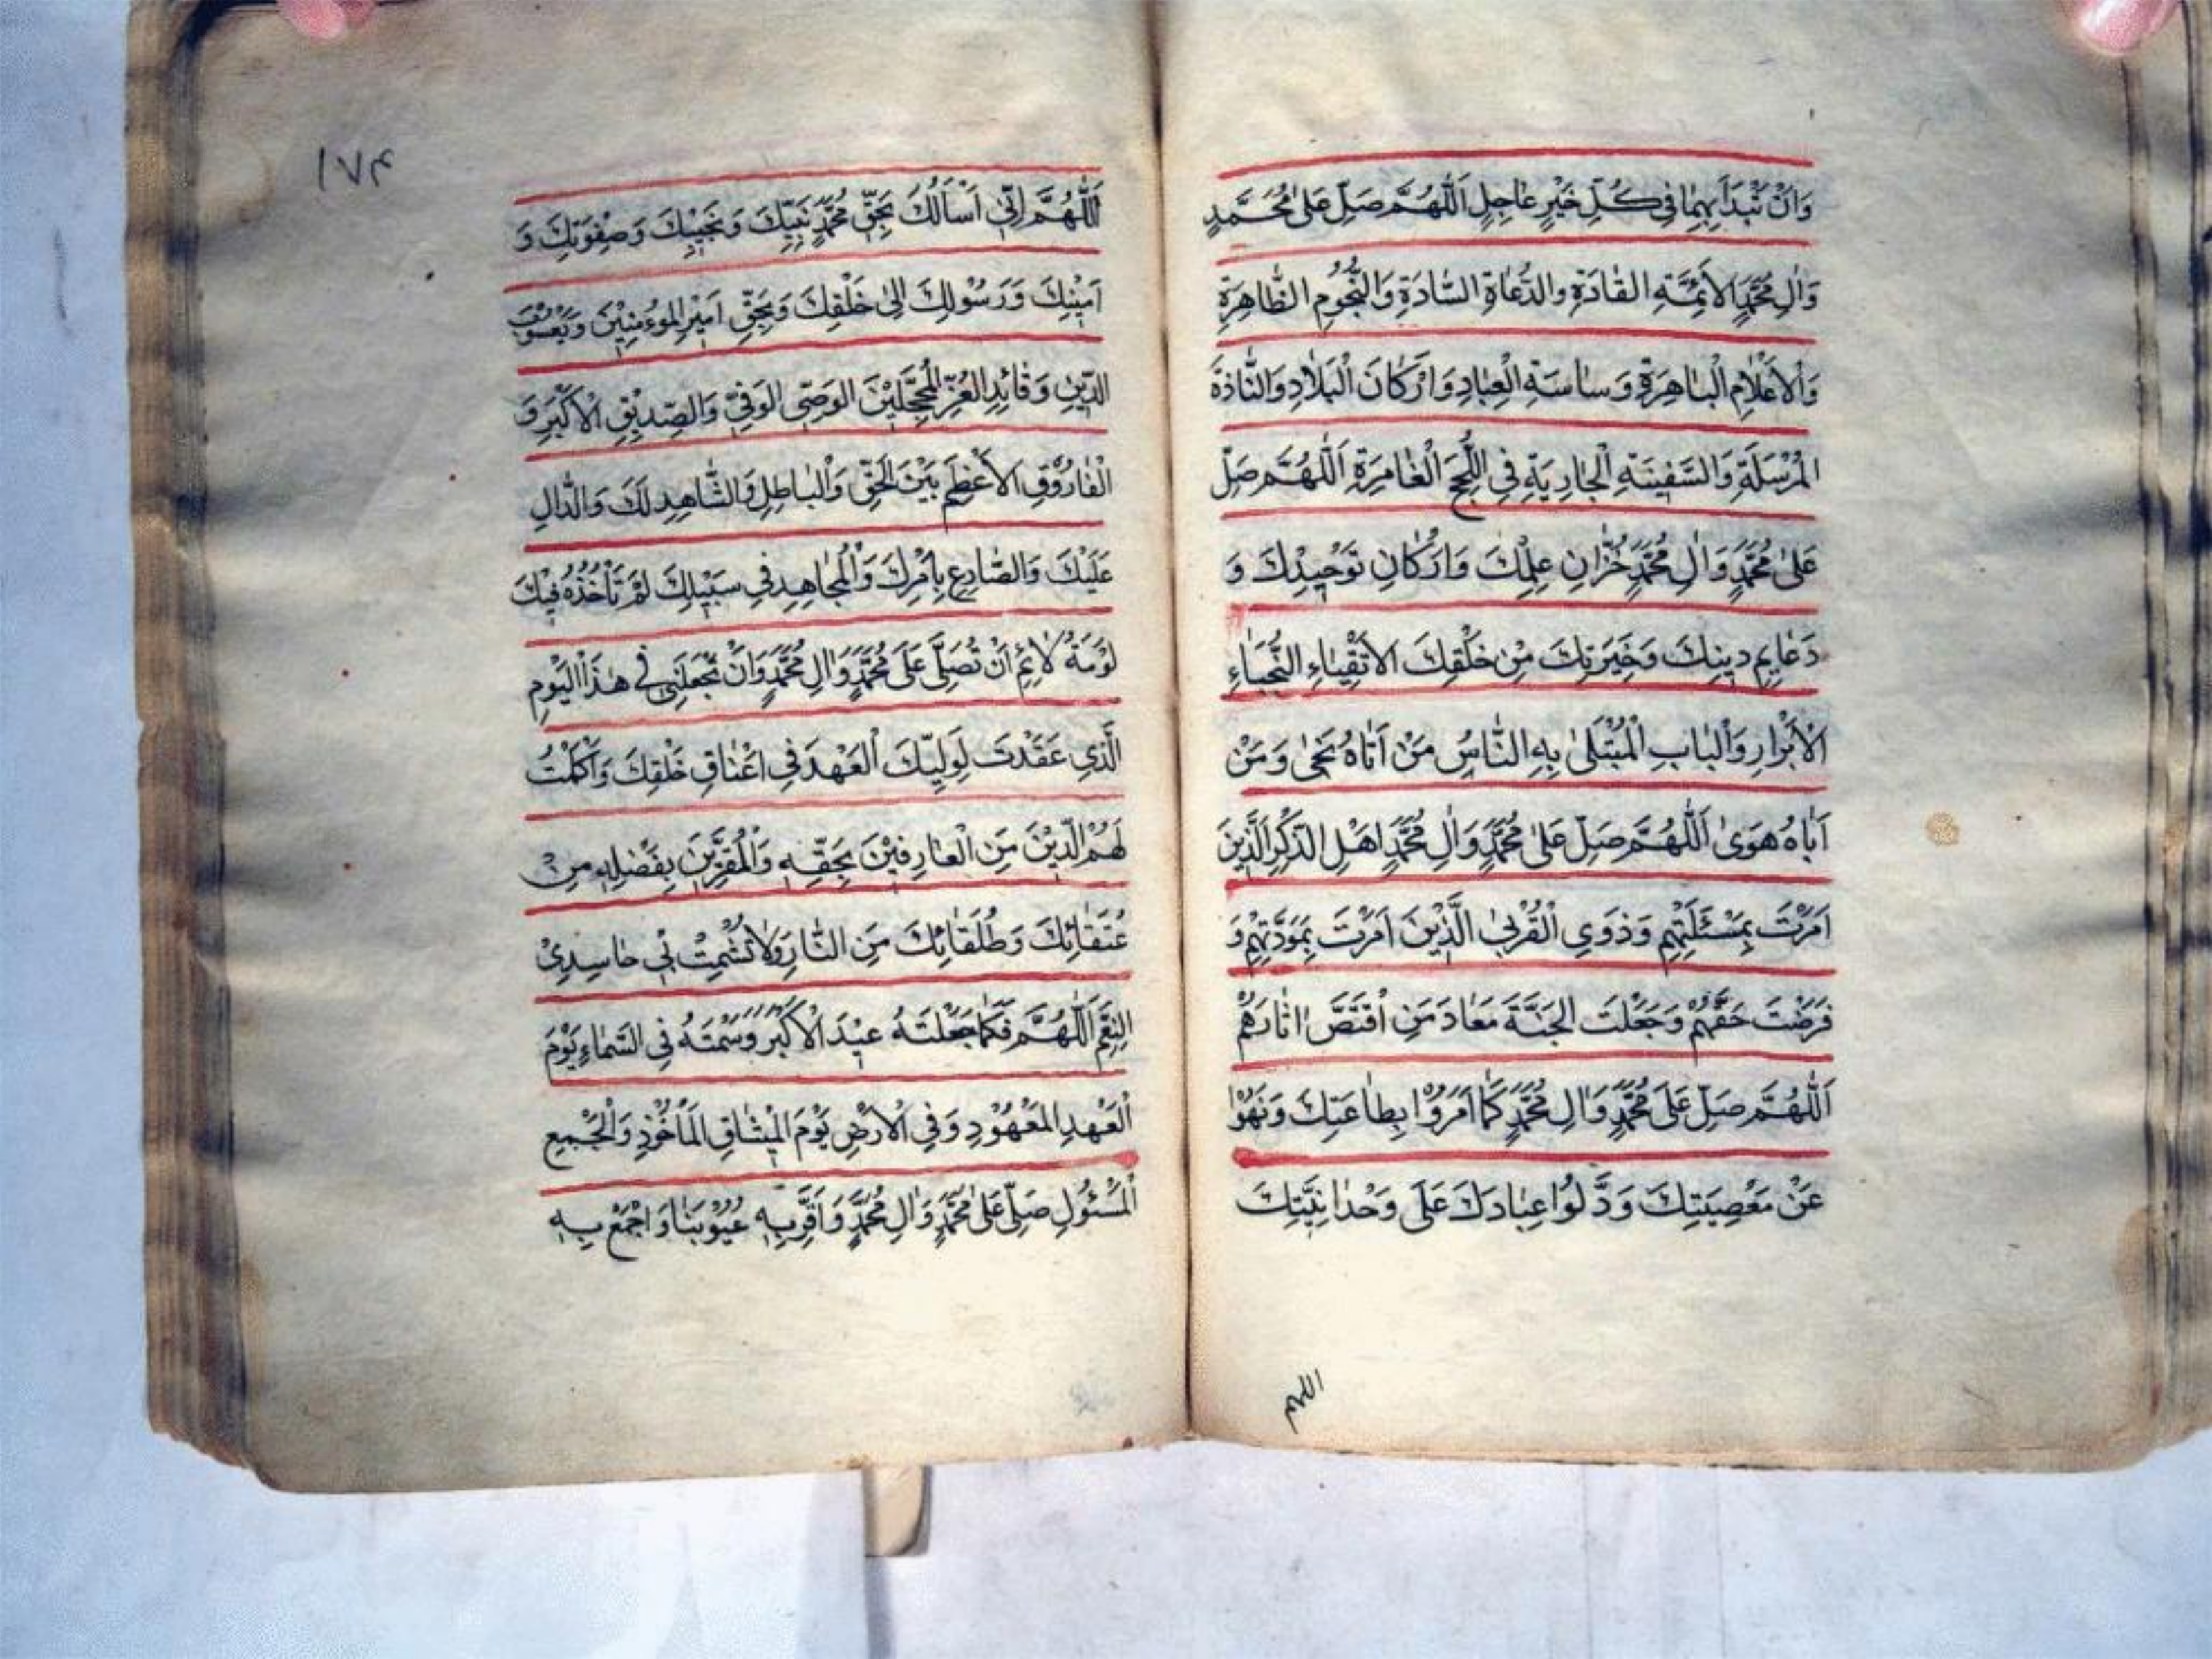 وَاَنْ تَبْدَأَ بِهِمٰا فِى كُلِّ خَيْرٍ عٰاجِلٍ اَللّٰهُمَّ صَلِّ عَلىٰ مُحَمَّدٍ
وَاٰلِ مُحَمَّدٍ الاَئِمَّةِ القٰادَةِ والدُّعٰاةِ السّٰادَةِ وَالنُّجُومِ الظّٰاهِرَةِ
وَالاَعْلٰامِ الْبٰاهِرَةِ وَسٰاسَةِ الْعِبٰادِ وَاَرْكٰانَ الْبَلٰادِ وَالنّٰاذةَ
المُرْسَلَةِ وَالسَّفِينَةِ الْجٰارِيَةِ فِى اللُّجَجِ الْغٰامِرَةِ اَللّٰهُمَّ صَلِّ
عَلىٰ مُحَمَّدٍ وَاٰلِ مُحَمَّدٍ خُزّٰانِ عِلْمِكَ وَاَرْكٰانِ تَوْحِيْدِكَ وَ
دَعٰايِمِ دِينِكَ وَخِيَرَتِكَ مِنْ خَلْقِكَ الاَتْقِيٰاءِ النُّجَبٰاءِ
الْاَبْرٰارِ وَالْبٰابِ الْمُبْتَلىٰ بِهِ النّٰاسُ مَنْ اَتٰاهُ نَجىٰ وَمَنْ
اَبٰاهُ هَوىٰ اَللّٰهُمَّ صَلِّ عَلىٰ مُحَمَّدٍ وَاٰلِ مُحَمَّدٍ اهْلِ الذِّكْرِ الَّذِينَ
اَمَرْتَ بِمَسْئَلَتِهِمِ وَذَوِى الْقُرْبىٰ الَّذِيْنَ اَمَرْتَ بِمَوَدَّتِهِمْ وَ
فَرَضْتَ حَقَّهُمْ وَجَعَلْتَ الجَنَّةَ مَعٰادَ مَنِ اقْتَصَّ اٰثٰارَهُمْ
اَللّٰهُمَّ صَلِّ عَلىَ مُحَمَّدٍ وَاٰلِ مُحَمَّدٍ كَمٰا اَمَرُوْا بِطٰاعَتِكَ وَنَهَوْا
عَنْ مَعْصِيَتِكَ وَدَّلُوْا عِبٰادَكَ عَلىَ وَحْدٰانِيَّتِكَ
١٨٤
اَللّٰهُمَّ اِنِّى اَسْأَلُكَ بِحَقِّ مُحَمَّدٍ نَبِيِّكَ وَنَجَيْبِكَ وَصِفْوَتِكَ وَ
اَمِيْنِكَ وَرَسُوْلِكَ اِلىٰ خَلْقِكَ وَبِحَقِّ اَمِيْرِ المُوءمِنِيْنَ وَيَعْسُوْبِ
الدِّيْنِ وَقٰائِدِ الغُرِّ الْمُحَجَّلِيْنَ الوَصِّى الوَفِىِّ وَالصِّدِيْقِ الْاَكْبَرِ وَ
الْفٰارُوْقِ الاَعْظَمِ بَيْنَ الْحَقِّ وَالْبٰاطِلِ وَالشّٰاهِدِ لَكَ وَالدّٰالِ
عَلَيْكَ وَالصّٰادِعِ بِاَمْرِكَ وَالْمُجٰاهِدِ فِى سَبِيْلِكَ لَمْ تَأْخُذْهُ فِيْكَ
لَوْمَةُ لٰائِمٍ اَنْ تُصَلِّىَ عَلىَ مُحَمَّدٍ وَاٰلِ مُحَمَّدٍ وَاَنْ تَجْعَلَنِى فِى هٰذَا الْيَوْمِ
الَّذِى عَقَدْتَ لِوَلِيِّكَ الْعَهْدَ فِى اَعْنٰاقِ خَلْقِكَ وَاَكْمَلْتَ
لَهُمُ الدِّيْنَ مِنَ الْعٰارِفِيْنَ بِحَقِّهِ وَالْمُقِرِّيْنَ بِفَضْلِهِ مِنْ
عُتَقٰائِكَ وَطُلَقٰائِكَ مِنَ النّٰارِ وَلاٰ تُشْمِتْ بِى حٰاسِدِىْ
النِعَّمِ اَللّٰهُمَّ فَكَمٰا جَعَلْتَهُ عِيْدَ الْاَكْبَرَ وَسَمَّتَهُ فِى السَّمٰاءِ يَوْمَ
الْعَهْدِ المَعْهُوْدِ وَفِى الْاَرْضِ يَوْمَ الْمِيْثٰاقِ الْمَأْخُوْذِ وَالْجَمْعِ
الْمَسْئُولِ صَلِّ عَلىٰ مُحَمَّدٍ وَاٰلِ مُحَمَّدٍ وَاَقْرِرْ بِهِ عُيُوْنَنٰا وَاجْمَعْ بِهِ